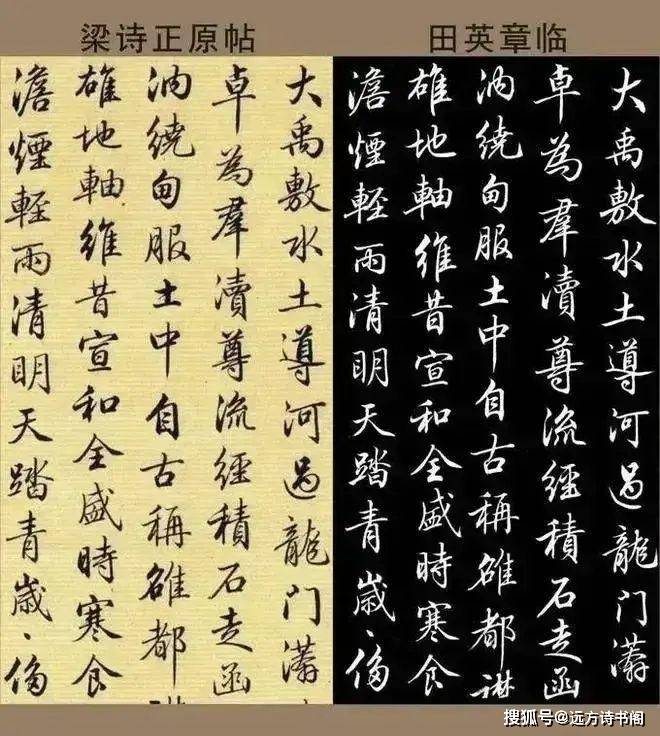 梁诗正原帖
大禹敷水土導河過龍门
卓為羣瀆尊流經積石走函
汭繞甸服土中自古稱雒都
雄地軸維昔宣和全盛時寒食
澹煙輕雨清明天踏青歲〻侈
田英章临
大禹敷水土導河過龍门
卓為羣瀆尊流經積石走函
汭繞甸服土中自古稱雒都
雄地軸維昔宣和全盛時寒食
澹煙輕雨清明天踏青歲〻侈
搜狐号@远方诗书阁